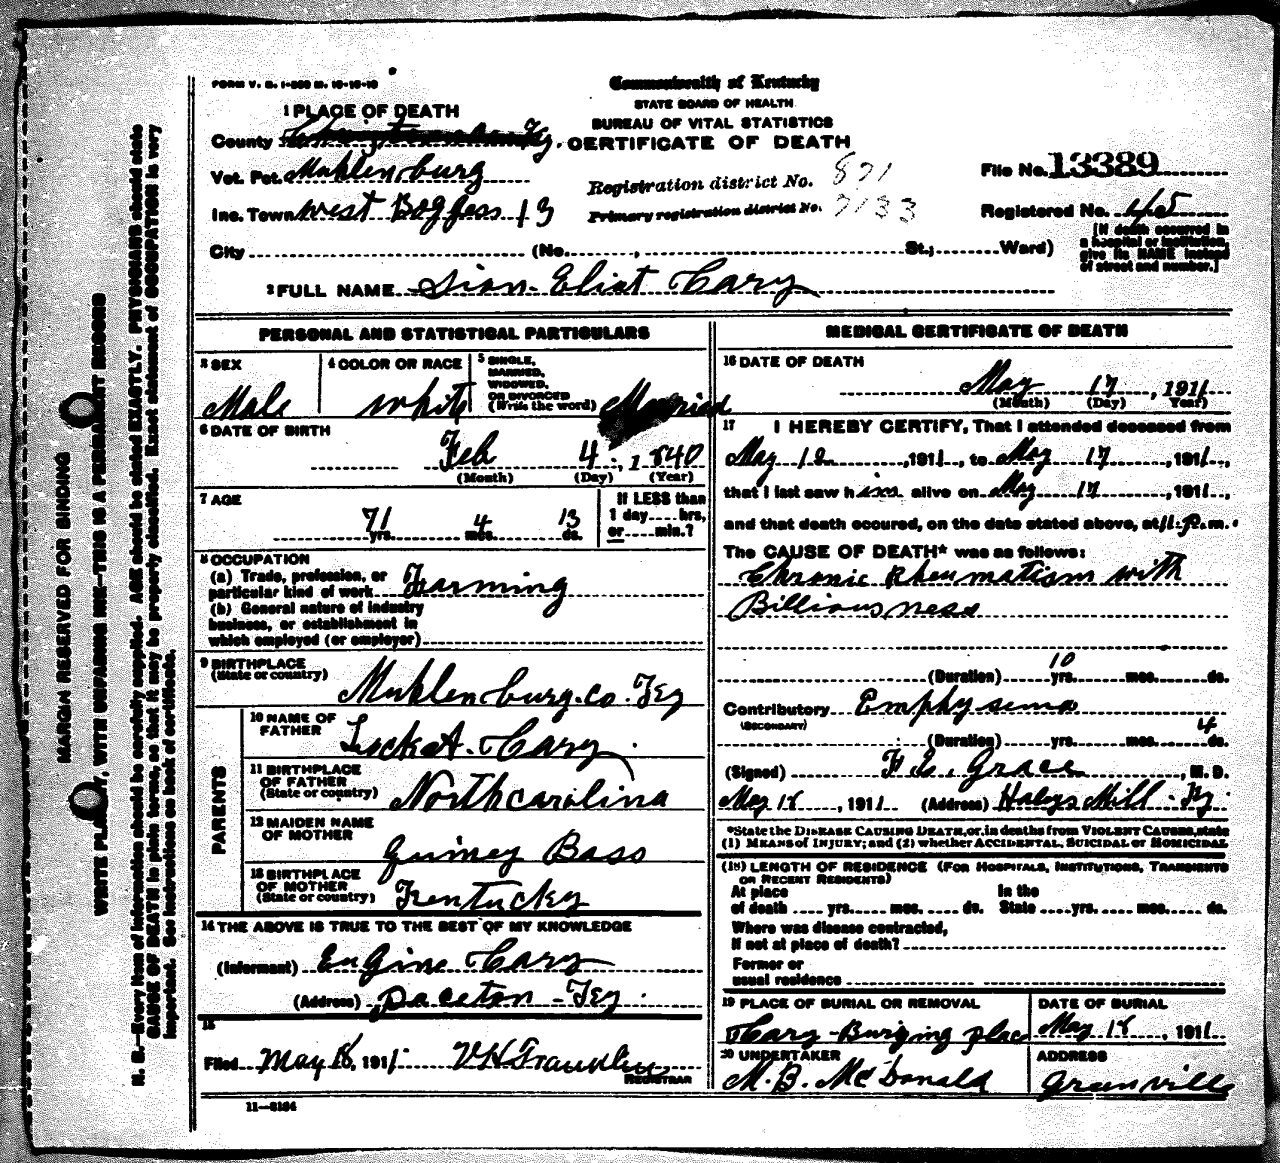 FORM V. S. 1-350 M. 10-18-10
Commonwealth of Kentucky
STATE BOARD OF HEALTH
BUREAU OF VITAL STATISTICS
CERTIFICATE OF DEATH
1 PLACE OF DEATH
County Ky.
Vot. Pct. Muhlenburg
Inc. Town West Boggess 13
Registration district No. 871
Primary registration district No. 7133
File No. 13389
Registered No. 45
[If death occurred in a hospital or institution, give its NAME instead of street and number.]
City (No. , St.; Ward)
2 FULL NAME Sion Eliat Cary
PERSONAL AND STATISTICAL PARTICULARS
3 SEX
Male
4 COLOR OR RACE
white
5 SINGLE, MARRIED, WIDOWED, OR DIVORCED (Write the word)
Married
6 DATE OF BIRTH
Feb 4, 1840
(Month) (Day) (Year)
7 AGE
71 yrs. 4 mos. 13 ds.
If LESS than 1 day.... hrs, or.....min.?
8 OCCUPATION
(a) Trade, profession, or particular kind of work Farming
(b) General nature of industry business, or establishment in which employed (or employer)
9 BIRTHPLACE
(State or country)
Muhlenburg. co. Ky
PARENTS
10 NAME OF FATHER
Locket. Cary.
11 BIRTHPLACE OF FATHER
(State or country)
North carolina
12 MAIDEN NAME OF MOTHER
Guiney Bass
13 BIRTHPLACE OF MOTHER
(State or country)
Kentucky
14 THE ABOVE IS TRUE TO THE BEST OF MY KNOWLEDGE
(Informant) EuGine Cary
(Address) Daceton - Ky.
15
Filed May 18, 1911. V H Franklin
REGISTRAR
11—3184
MEDICAL CERTIFICATE OF DEATH
16 DATE OF DEATH
May 17, 1911
(Month) (Day) (Year)
17 I HEREBY CERTIFY, That I attended deceased from
May 12, 1911, to May 17, 1911,
that I last saw him alive on May 17, 1911,
and that death occured, on the date stated above, at 11.P.m.
The CAUSE OF DEATH* was as follows:
Chronic Rheumatism with
Billiousness
(Duration) 10 yrs. mos. ds.
Contributory Emphysema
(SECONDARY)
(Duration) yrs. mos. 4 ds.
(Signed) F. E. Grace, M. D.
May 18, 1911 (Address) Haleys Mill. Ky
*State the DISEASE CAUSING DEATH, or, in deaths from VIOLENT CAUSES, state
(1) MEANS of INJURY; and (2) whether ACCIDENTAL, SUICIDAL or HOMICIDAL
(18) LENGTH OF RESIDENCE (FOR HOSPITALS, INSTITUTIONS, TRANSIENTS OR RECENT RESIDENTS)
At place of death .... yrs. mos. ds. In the State yrs. mos. ds.
Where was disease contracted, If not at place of death?
Former or usual residence
19 PLACE OF BURIAL OR REMOVAL
Cary - Burying place
DATE OF BURIAL
May 18, 1911
20 UNDERTAKER
M. B. McDonald
ADDRESS
Greenville
MARGIN RESERVED FOR BINDING
WRITE PLAINLY, WITH UNFADING INK—THIS IS A PERMANENT RECORD
N. B.—Every item of information should be carefully supplied. AGE should be stated EXACTLY. PHYSICIANS should state
CAUSE OF DEATH in plain terms, so that it may be properly classified. Exact statement of OCCUPATION is very
important. See instructions on back of certificate.